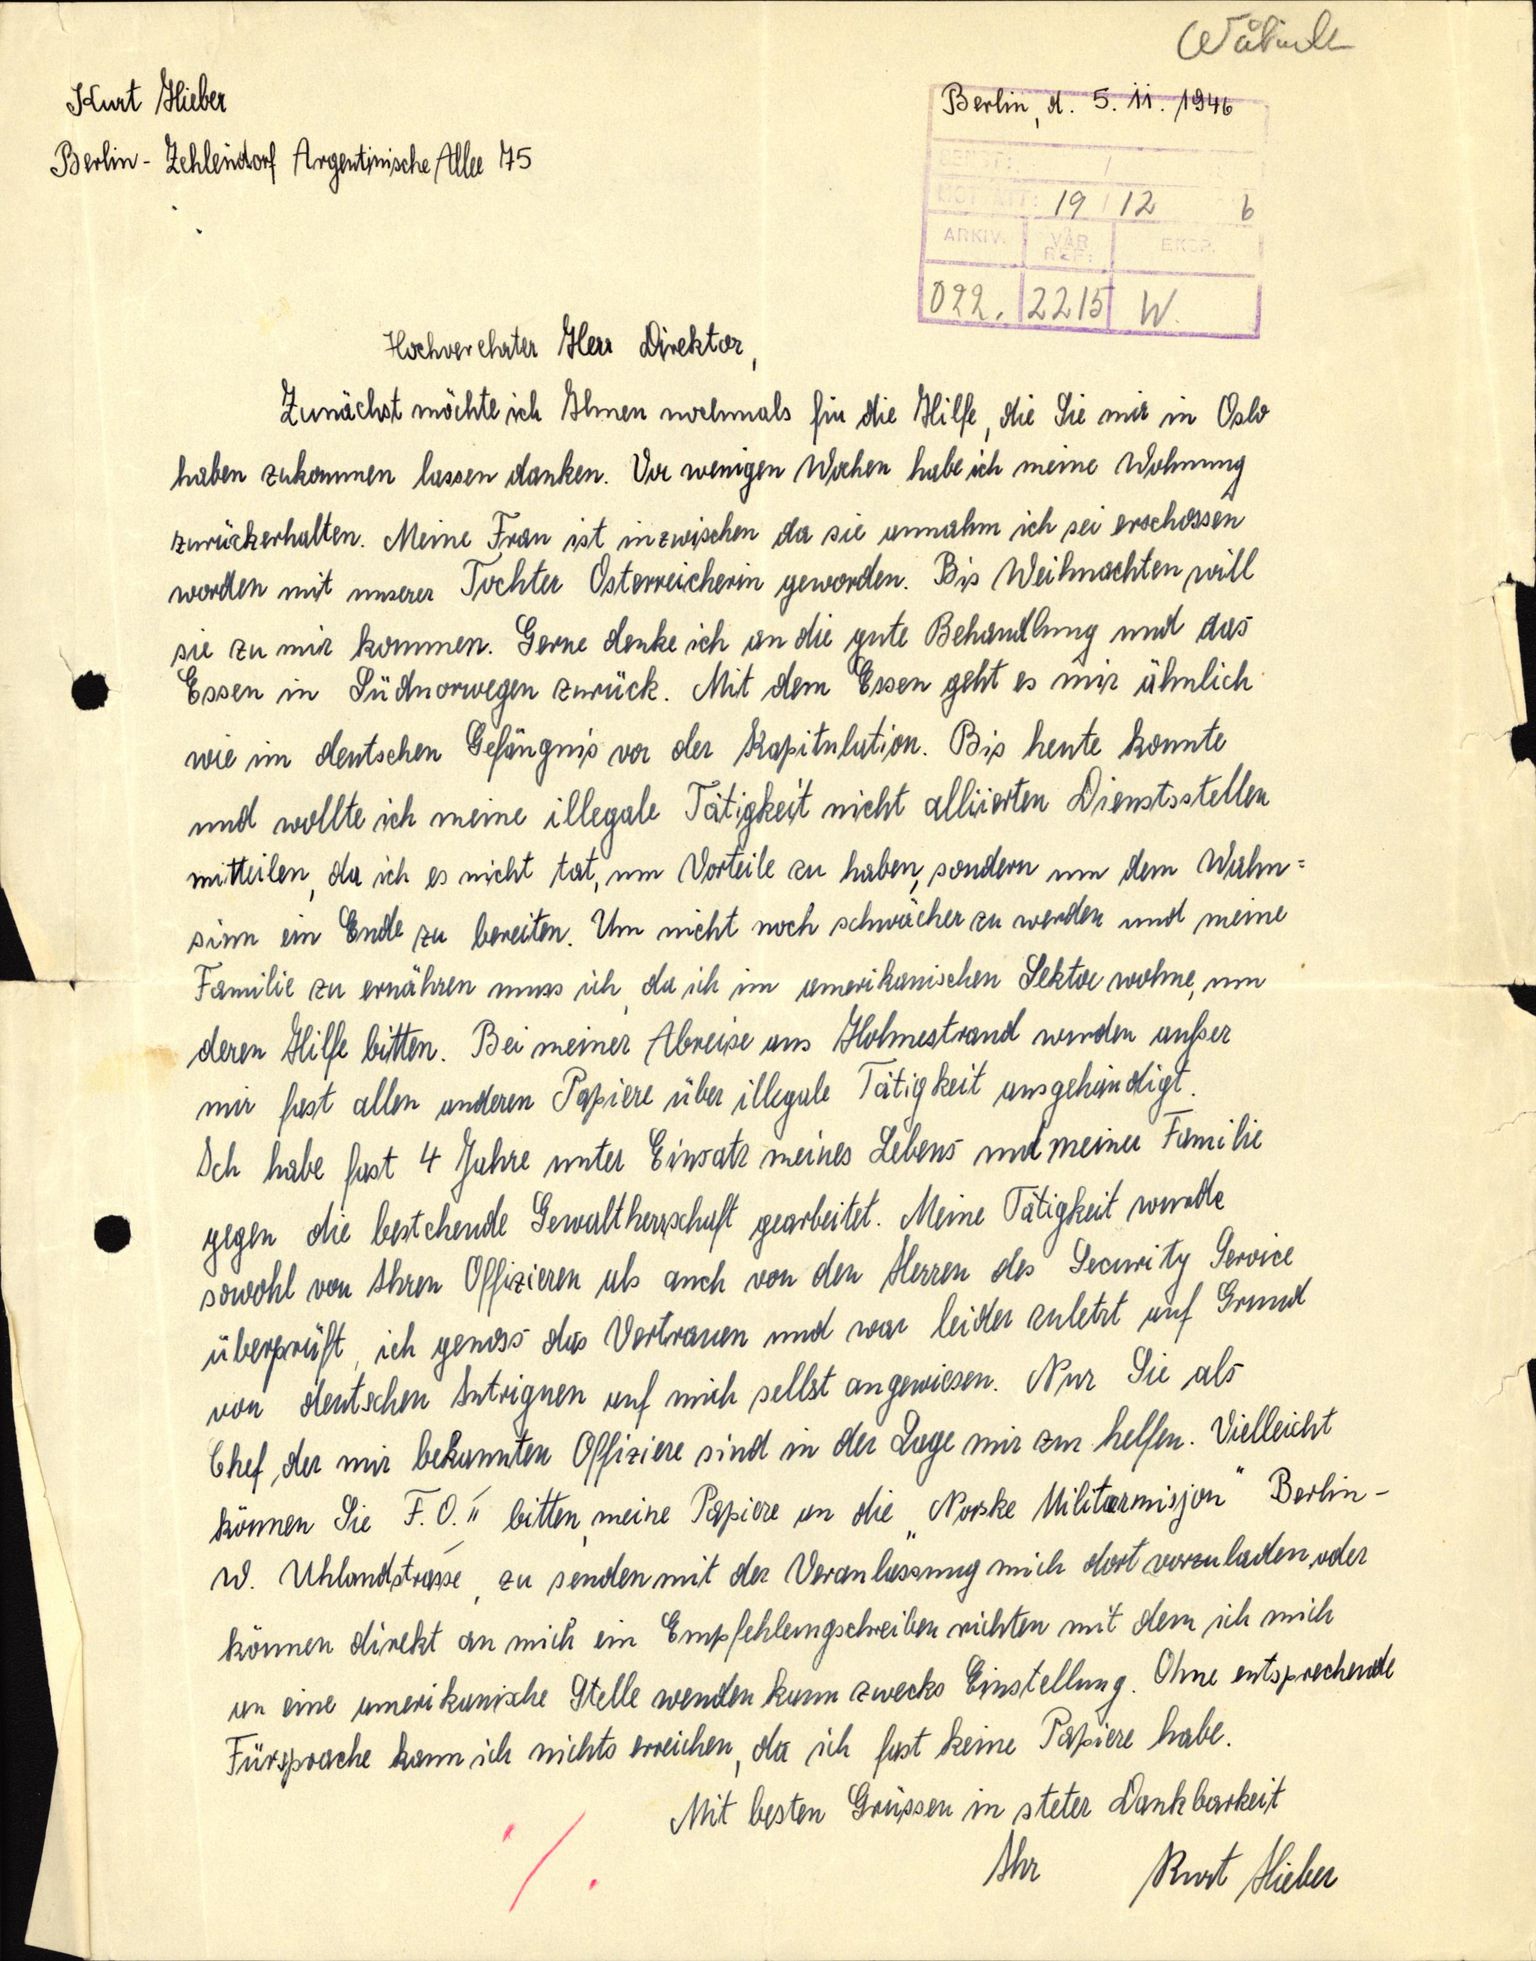 Kurt Hieber
Berlin, d. 5. 11. 1946
Berlin - Zehlendorf Argentinische Allee 75
MOTTATT: 19 / 12 6
ARKIV. VÅR REF: EKSP.
022. 2215 W.
Hochverehrter Herr Direktor,
Zunächst möchte ich Ihnen nochmals für die Hilfe, die Sie mir in Oslo
haben zukommen lassen danken. Vor wenigen Wochen habe ich meine Wohnung
zurückerhalten. Meine Frau ist inzwischen da sie annahm ich sei erschossen
worden mit unserer Tochter Österreicherin geworden. Bis Weihnachten will
sie zu mir kommen. Gerne denke ich an die gute Behandlung und das
Essen in Südnorwegen zurück. Mit dem Essen geht es mir ähnlich
wie im deutschen Gefängnis vor der Kapitulation. Bis heute konnte
und wollte ich meine illegale Tätigkeit nicht alliierten Dienstsstellen
mitteilen, da ich es nicht tat, um Vorteile zu haben, sondern um dem Wahn=
sinn ein Ende zu bereiten. Um nicht noch schwächer zu werden und meine
Familie zu ernähren muss ich, da ich im amerikanischen Sektor wohne, um
deren Hilfe bitten. Bei meiner Abreise aus Holmestrand wurden außer
mir fast allen anderen Papiere über illegale Tätigkeit ausgehändigt.
Ich habe fast 4 Jahre unter Einsatz meines Lebens und meiner Familie
gegen die bestehende Gewaltherrschaft gearbeitet. Meine Tätigkeit wurde
sowohl von Ihren Offizieren als auch von den Herren des Security Service
überprüft, ich genoss das Vertrauen und war leider zuletzt auf Grund
von deutschen Intriguen auf mich selbst angewiesen. Nur Sie als
Chef, der mir bekannten Offiziere sind in der Lage mir zur helfen. Vielleicht
können Sie F. O. II bitten, meine Papiere an die „Norske Militærmisjon" Berlin -
W. Uhlandstrasse, zu senden mit der Veranlassung mich dort vorzuladen, oder
können direkt an mich ein Empfehlungschreiben richten mit dem ich mich
an eine amerikanische Stelle wenden kann zwecks Einstellung. Ohne entsprechende
Fürsprache kann ich nichts erreichen, da ich fast keine Papiere habe.
Mit besten Grüssen in steter Dankbarkeit
Ihr Kurt Hieber